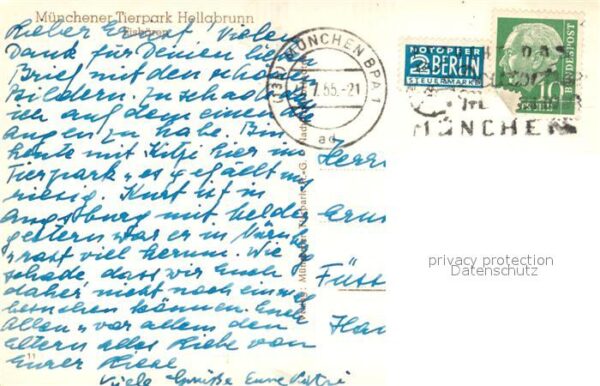 Münchener Tierpark Hellabrunn
Eisbären
Lieber Ernst! Vielen
Dank für Deinen lieben
Brief mit den schönen
Bildern. Zu schade
ich auf dem einen die
Augen zu habe. Bin
heute mit Kitzi hier im
Tierpark, es gefällt uns
riesig. Kurt ist in
Augsburg mit
gestern war er in Nürn-
rast viel herum. Wie
schade dass wir Euch
daher nicht noch einmal
besuchen können. Euch
Allen, vor allem den
Eltern alles Liebe von
Eurer
Viele Grüße Eure
11
MÜNCHEN BPA 1
7.55.-21
ad
NOTOPFER
2 BERLIN
STEUERMARKE
DEUTSCHE BUNDESPOST
10
MÜNCHEN
Herrn
Ernst
Füss
Ha
privacy protection
Datenschutz